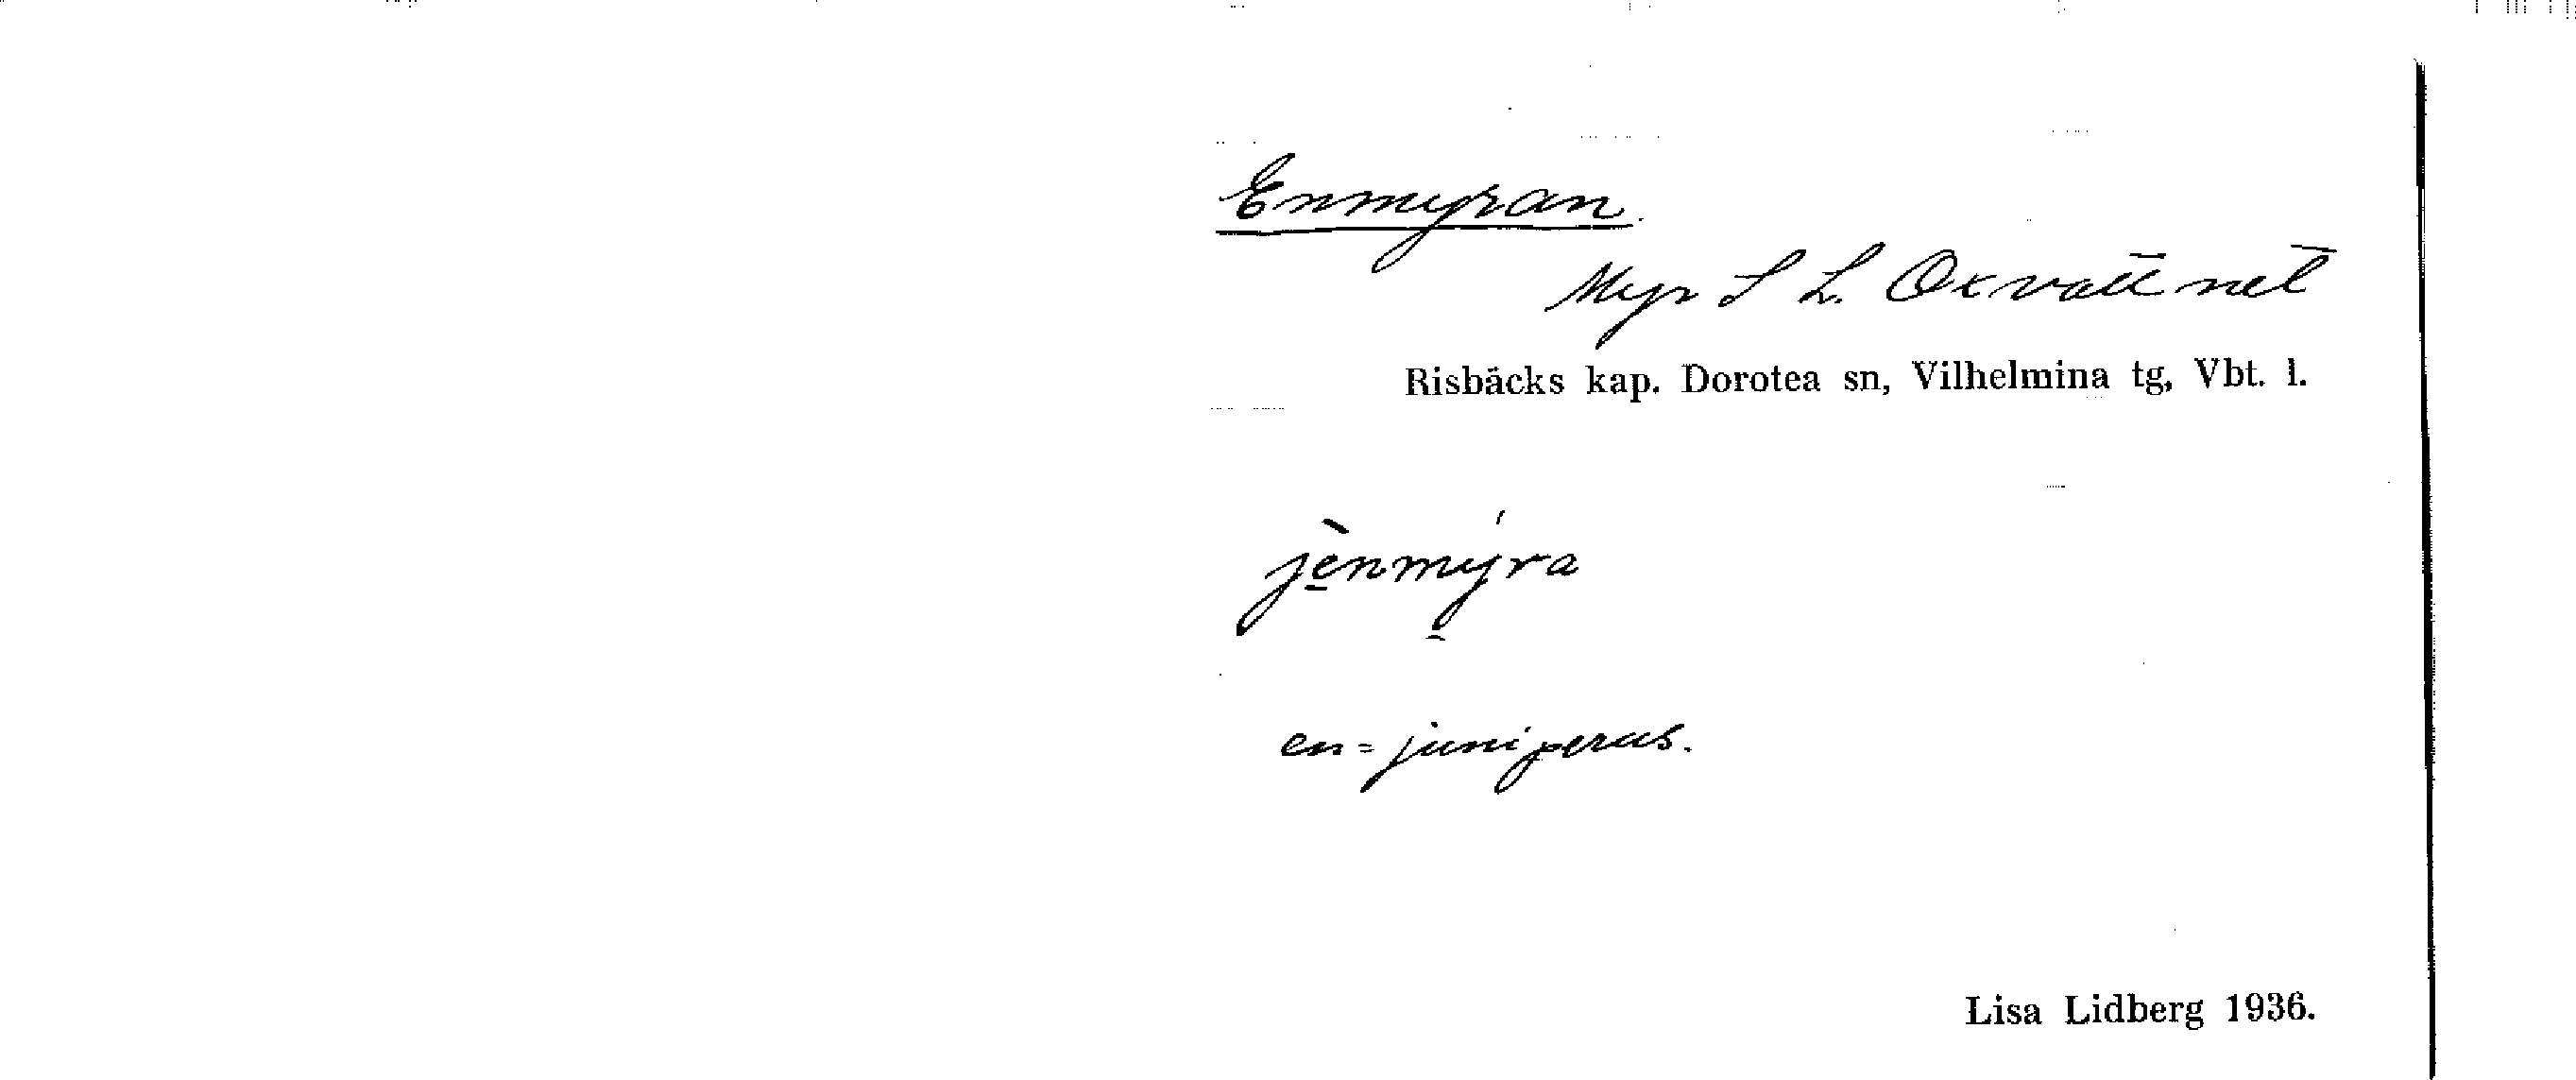 Enmyran.
Myr S L. Oxvattnet
Risbäcks kap. Dorotea sn, Vilhelmina tg, Vbt. l.
jènmy̱ra
en = juniperus.
Lisa Lidberg 1936.